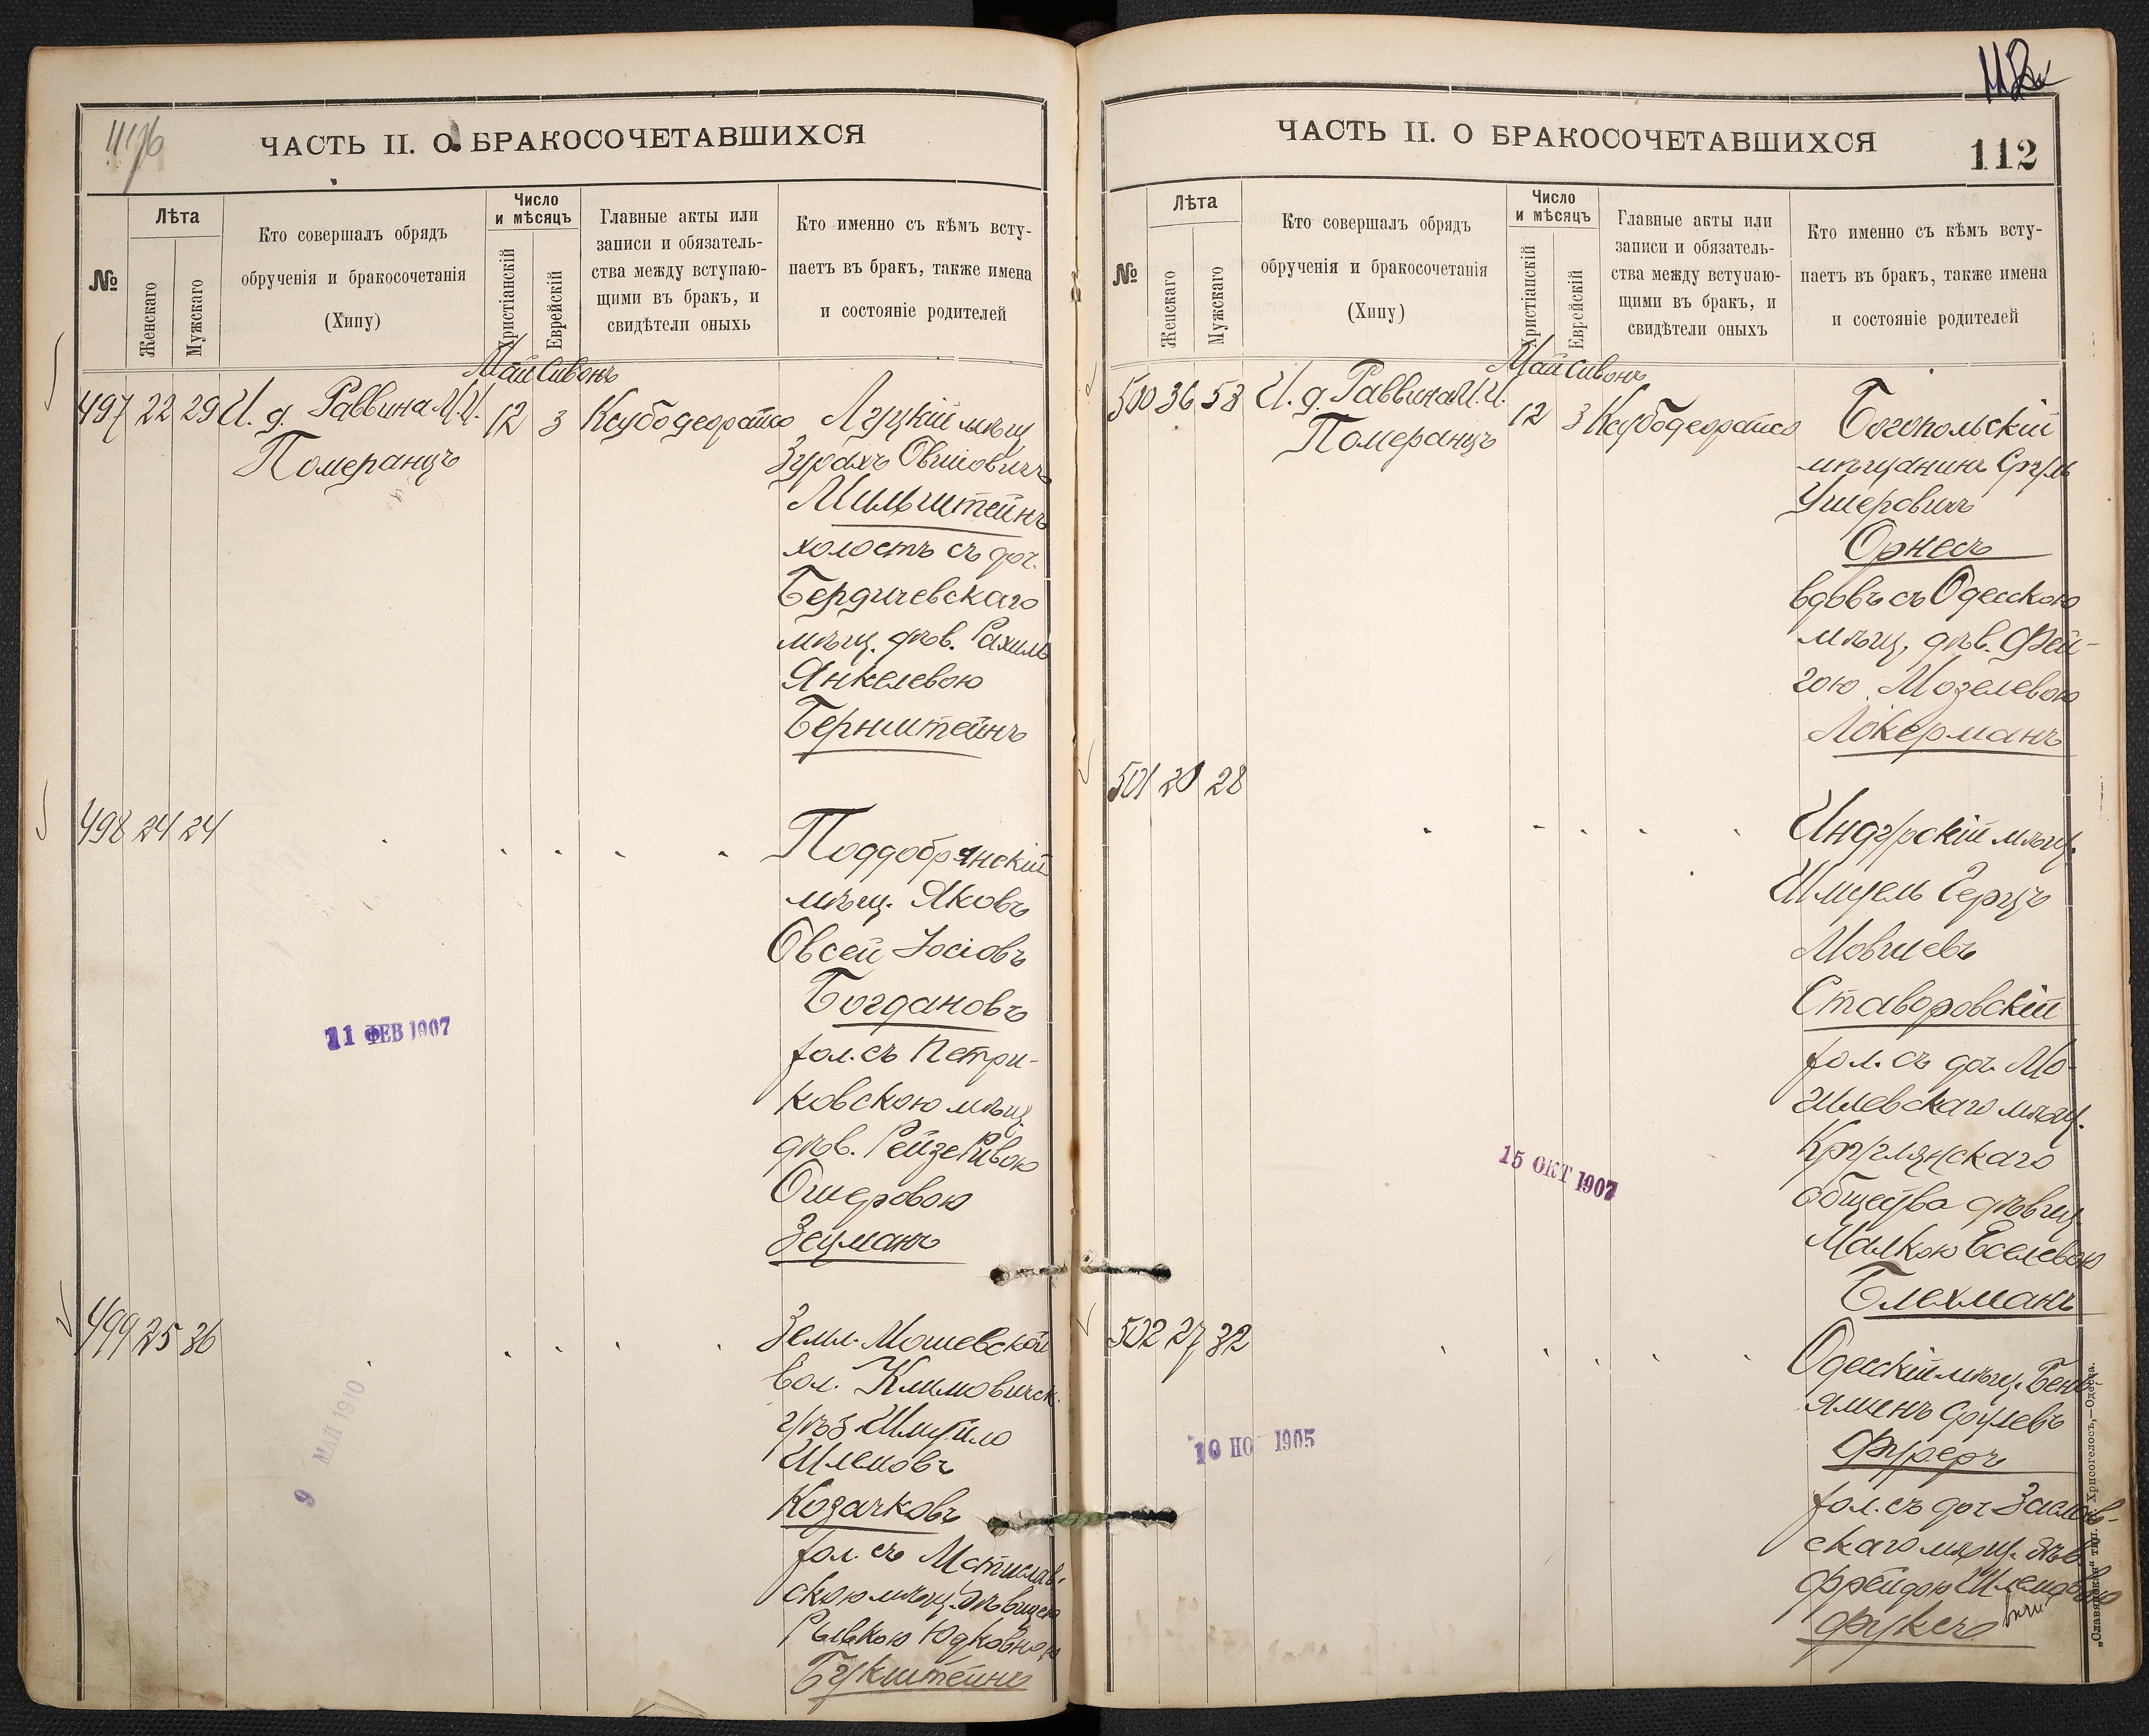 ЧАСТЬ II. О БРАКОСОЧЕТАВШИХСЯ
№
Лѣта
Женскаго
Мужскаго
Кто совершалъ обрядъ
обрученія и бракосочетанія
(Хипу)
Число
и мѣсяцъ
Христіанскій
Еврейскій
Главные акты или
записи и обязатель-
ства между вступаю-
щими въ бракъ, и
свидѣтели оныхъ
Кто именно съ кѣмъ всту-
паетъ въ бракъ, также имена
и состояніе родителей
Май Сивонъ
497 22 29 И. д. Раввина И. И. 12 3 Ксубодеорайсо
Померанцъ
Луцкій мѣщ
Зурахъ Овшіовичъ
Мильштейнъ
холостъ съ доч.
Бердичевскаго
мѣщ. дѣв. Рахиль
Янкелевою
Бернштейнъ
498 24 24
Поддобрянскій
мѣщ. Яковъ
Овсей Іосіовъ
Богдановъ
хол. съ Петри-
ковскою мѣщ.
дѣв. Рейзе Ривою
Ошеровою
Зецманъ
11 ФЕВ 1907
499 25 36
Земл. Мошевской
вол. Климовичск.
уѣз Шмуйло
Шлемовъ
Козачковъ
хол. съ Мстислав-
скою мѣщ. дѣвицею
Рывкою Юдковною
Букштейнъ
9 МАЙ 1910
ЧАСТЬ II. О БРАКОСОЧЕТАВШИХСЯ
112
№
Лѣта
Женскаго
Мужскаго
Кто совершалъ обрядъ
обрученія и бракосочетанія
(Хипу)
Число
и мѣсяцъ
Христіанскій
Еврейскій
Главные акты или
записи и обязатель-
ства между вступаю-
щими въ бракъ, и
свидѣтели оныхъ
Кто именно съ кѣмъ всту-
паетъ въ бракъ, также имена
и состояніе родителей
Май Сивонъ
500 36 53 И. д. Раввина И. И. 12 3 Ксубодеорайсо
Померанцъ
Богопольскій
мѣщанинъ Сруль
Ушеровичъ
Орнесъ
вдовъ съ Одесскою
мѣщ. дѣв. Фей-
гою Мозелевою
Локерманъ
501 20 28
Индурскій мѣщ.
Шмуель Герцъ
Мовшевъ
Ставоровскій
хол. съ доч. Мо-
гилевскаго мѣщ.
Круглянскаго
общества дѣвиц.
Малкою Еселевою
Блехманъ
15 ОКТ 1907
502 27 32
Одесскій мѣщ. Бень
яминъ Срулевъ
Фуреръ
хол. съ доч Заслав-
скаго мѣщ. дѣв.
Фрейдою Шлемовою
Фуксъ
10 НО 1905
„Славянская" тип. Хрисогелосъ,—Одесса.